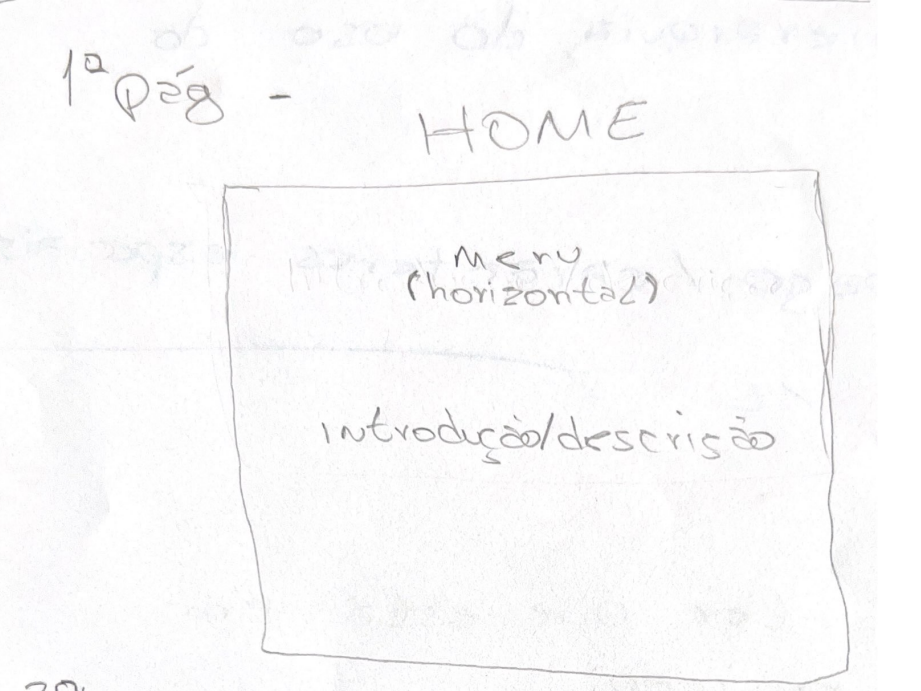 1ª pág -
HOME
Menu
(horizontal)
Introdução/descrição